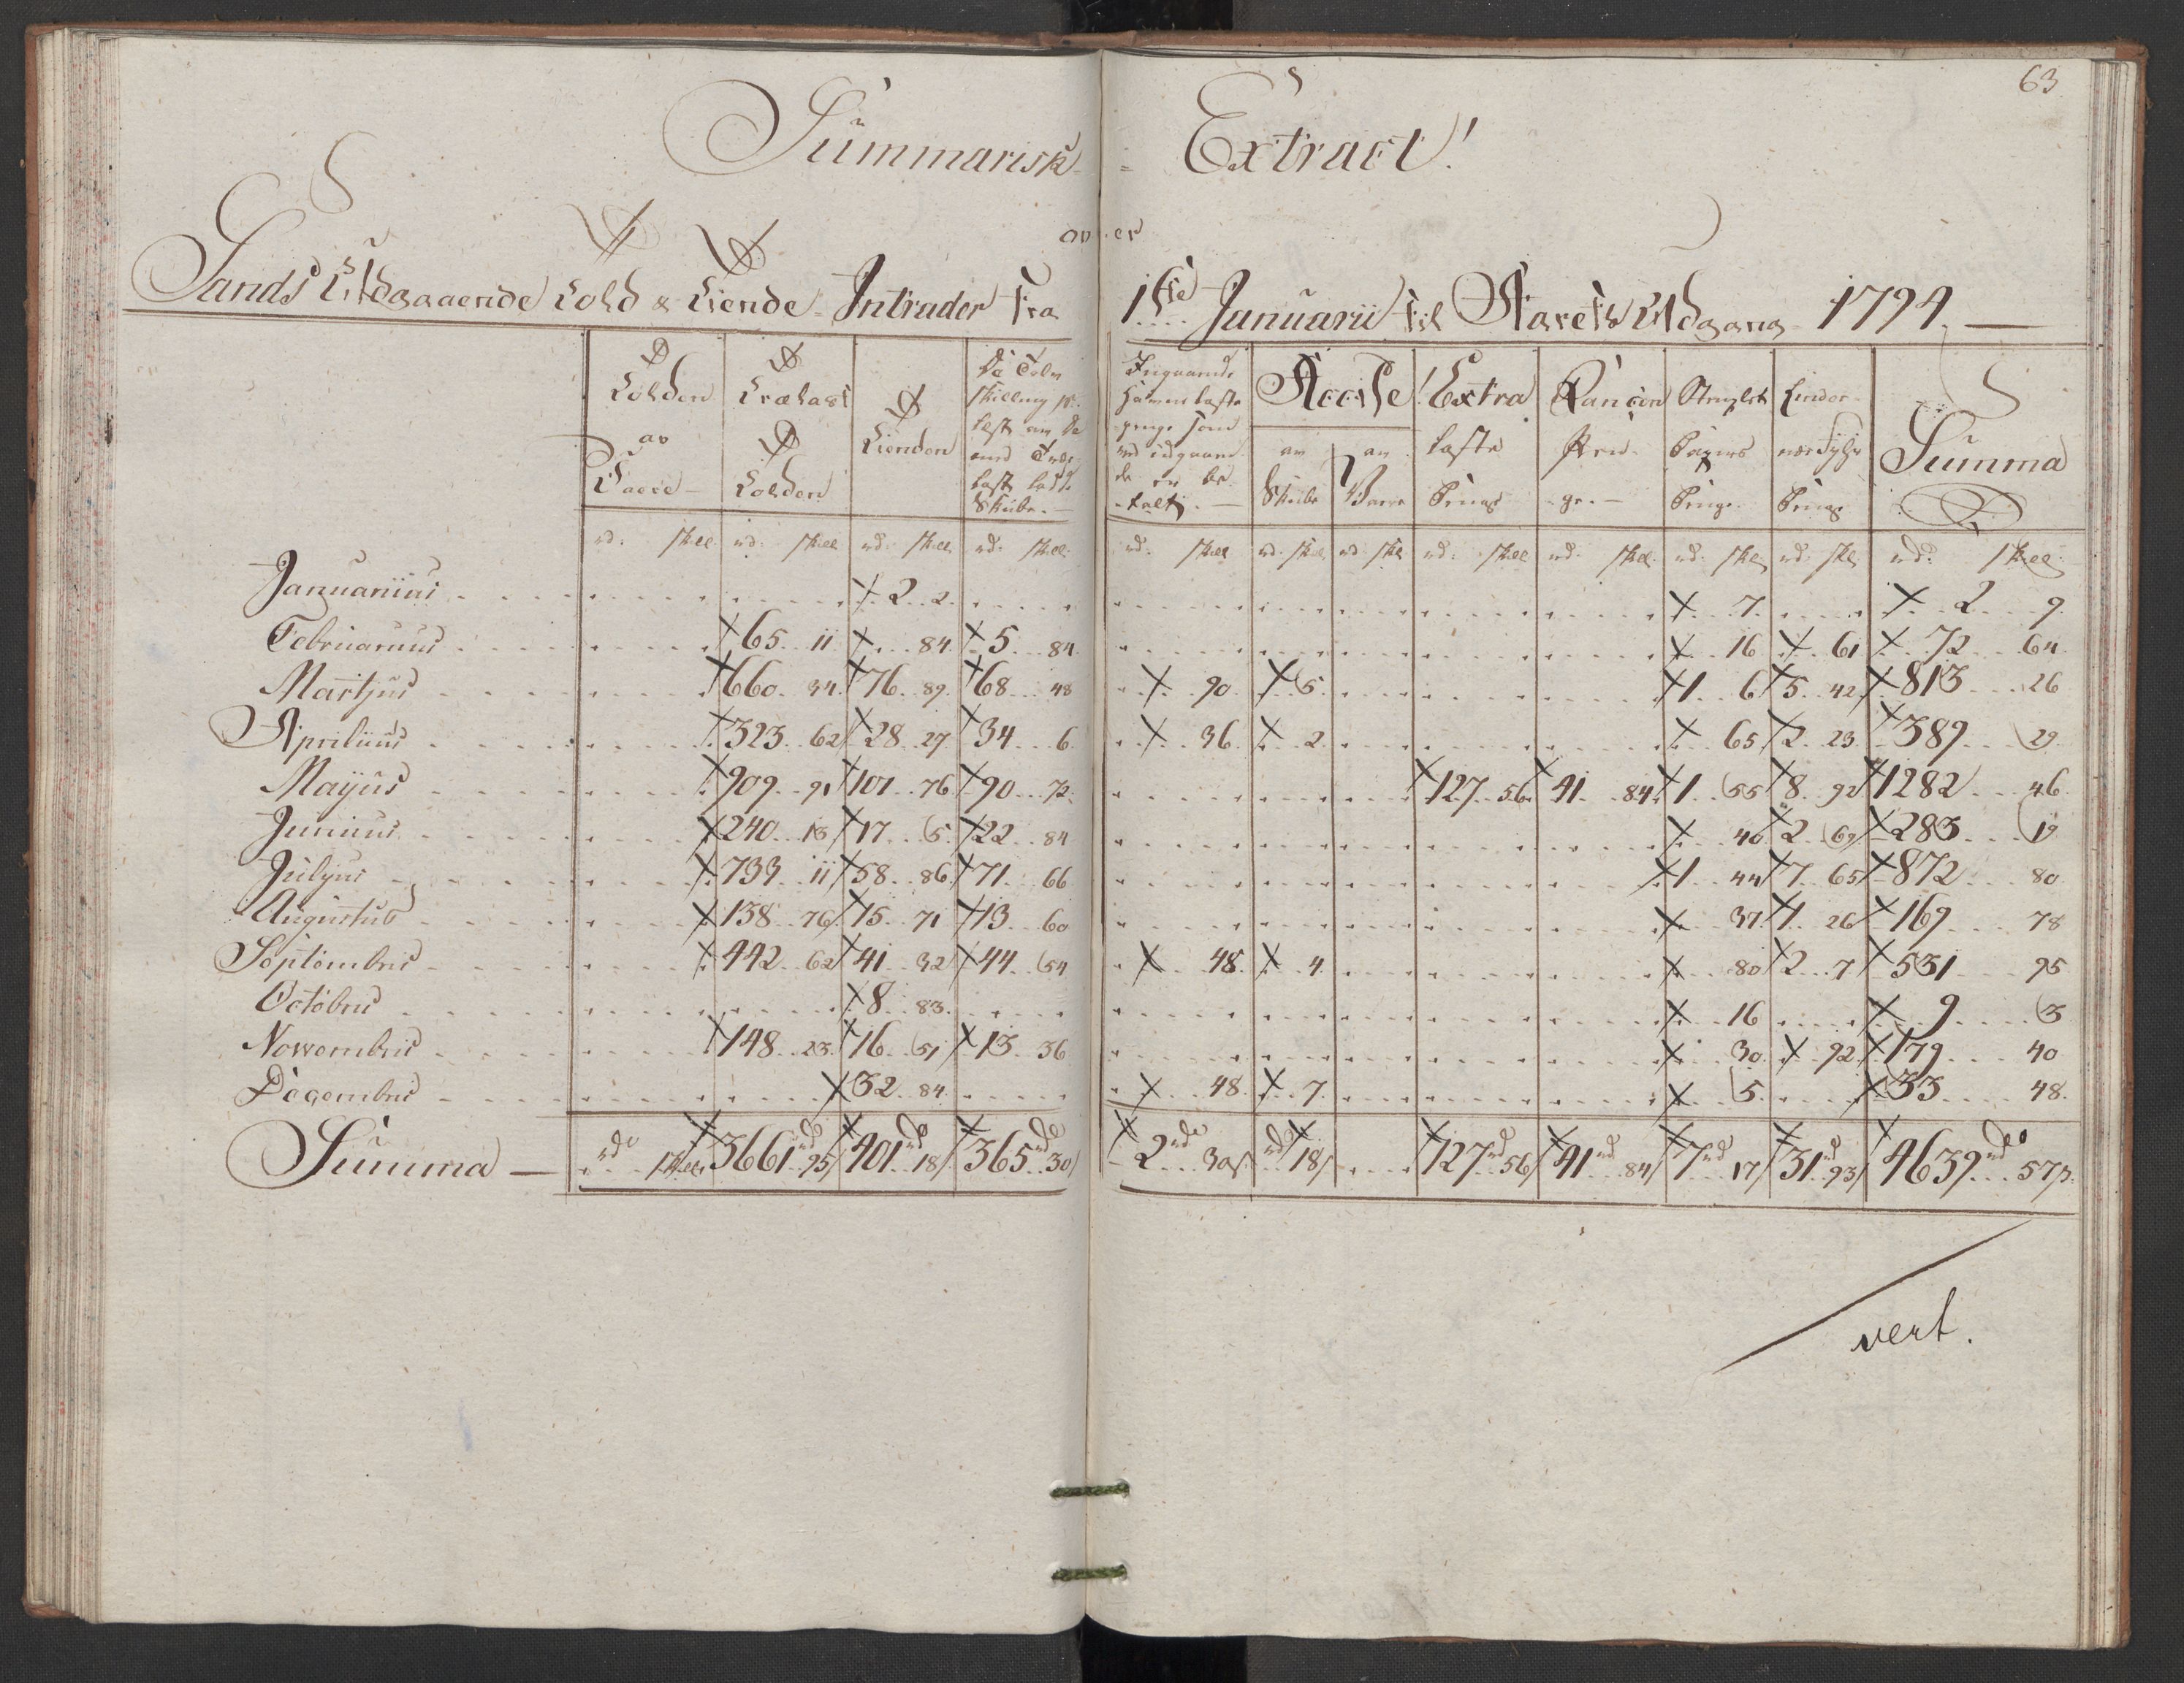 63
Summarisk Extract!
over
Sands Udgaaende Told & Tiende-Intrader Fra 1ste Januarii til Aarets Udgang 1794.
Tolden av Vare
Trælast Tolden
Tienden
De Tolv skilling pr. Lest av de med Trælast ladde Skibe.
Indgaaende Havne laste penge som ved udgaaende er betalt.
Accise av Skibe av Vare
Extra laste Penge
Rancon Penge
Stemplet Papirs Penge
Summa
rd. skill rd. skill rd. skill rd. skill rd. skill rd. skill rd. skill rd. skill rd. skill rd. skill rd. skill rd. skill
Januariius 2 2 7 2 9
Februarius 65 11 84 5 84 16 61 72 64
Martjus 660 34 76 89 68 48 90 5 1 6 5 42 813 26
Aprilius 323 62 28 27 34 6 36 2 65 2 23 389 29
Mayus 909 91 101 76 90 72 127 56 41 84 1 55 8 92 1282 46
Junius 240 13 17 5 22 84 40 2 69 283 19
Julyus 733 11 58 86 71 66 1 44 7 65 872 80
Augustus 138 76 15 71 13 60 37 1 26 169 78
Septembris 442 62 41 32 44 54 48 4 80 2 7 531 95
Octobris 8 83 16 9 3
Novembris 148 23 16 51 13 36 30 92 179 40
Decembris 32 84 48 7 5 33 48
Summa rd skill 3661 rd 95 401 rd 18 365 rd 30 2 rd 30 rd 18 127 rd 56 41 rd 84 7 rd 17 31 rd 93 4639 rd 57
vert.